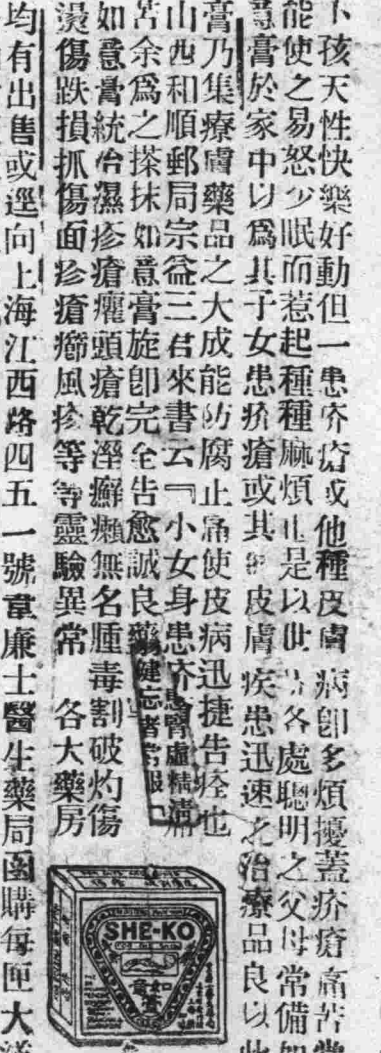 小孩天性快樂好動但一患疥瘡或他種皮膚病卽多煩擾蓋疥瘡痛苦
能使之易怒少眠而惹起種種麻煩也是以世界各處聰明之父母常備如
意膏於家中以爲其子女患疥瘡或其他皮膚疾患迅速之治療品良以此
膏乃集療膚藥品之大成能防腐止痛使皮病迅捷告痊也
山西和順郵局宗益三君來書云『小女身患疥
苦余爲之搽抹如意膏旋卽完全告愈誠良藥
如意膏統治濕疹瘡癰頭瘡乾溼癬癩無名腫毒割破灼傷
燙傷跌損抓傷面疹瘡癤風疹等等靈驗異常 各大藥房
均有出售或逕向上海江西路四五一號韋廉士醫生藥局函購每匣大洋
患腎虛精滴
健忘者常服
SHE-KO
如意膏